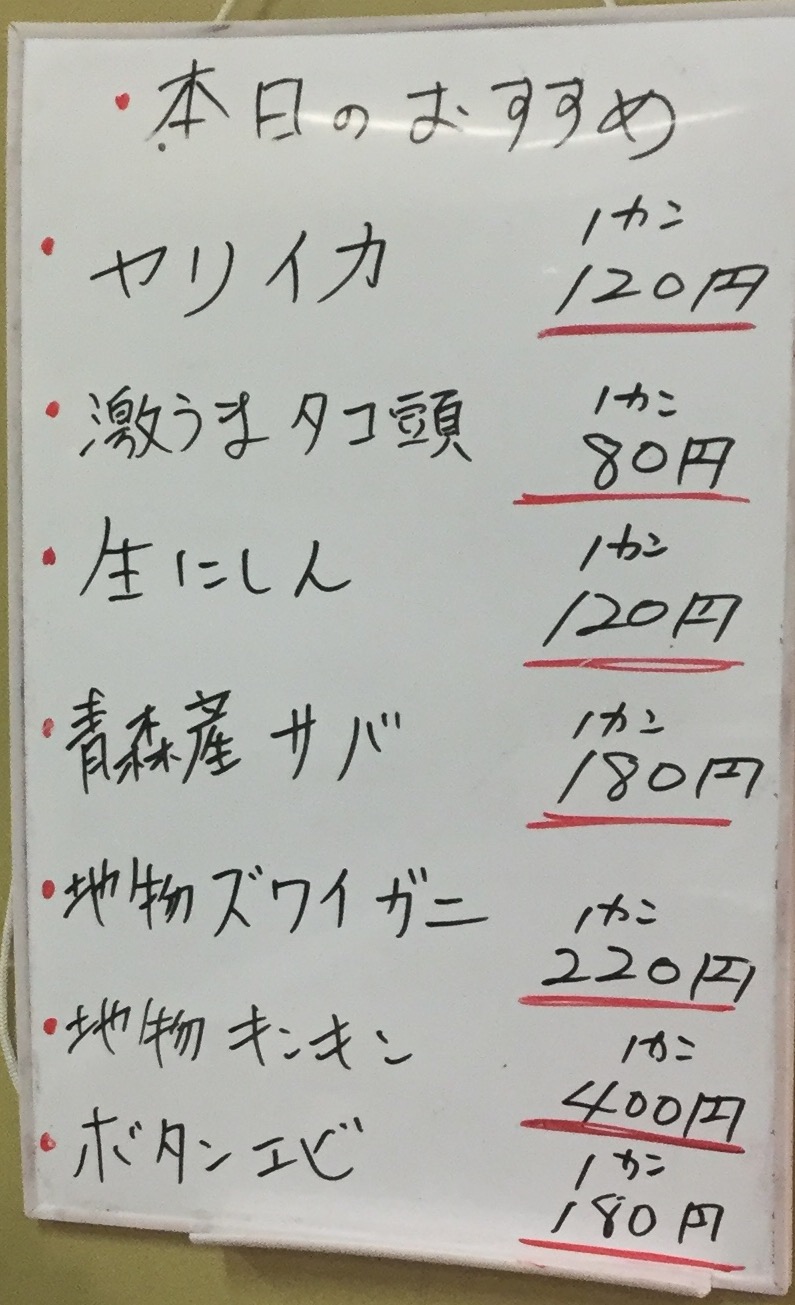 ・本日のおすすめ
・ヤリイカ 1カン
120円
・激うまタコ頭 1カン
80円
・生にしん 1カン
120円
・青森産サバ 1カン
180円
・地物ズワイガニ 1カン
220円
・地物キンキン 1カン
400円
・ボタンエビ 1カン
180円